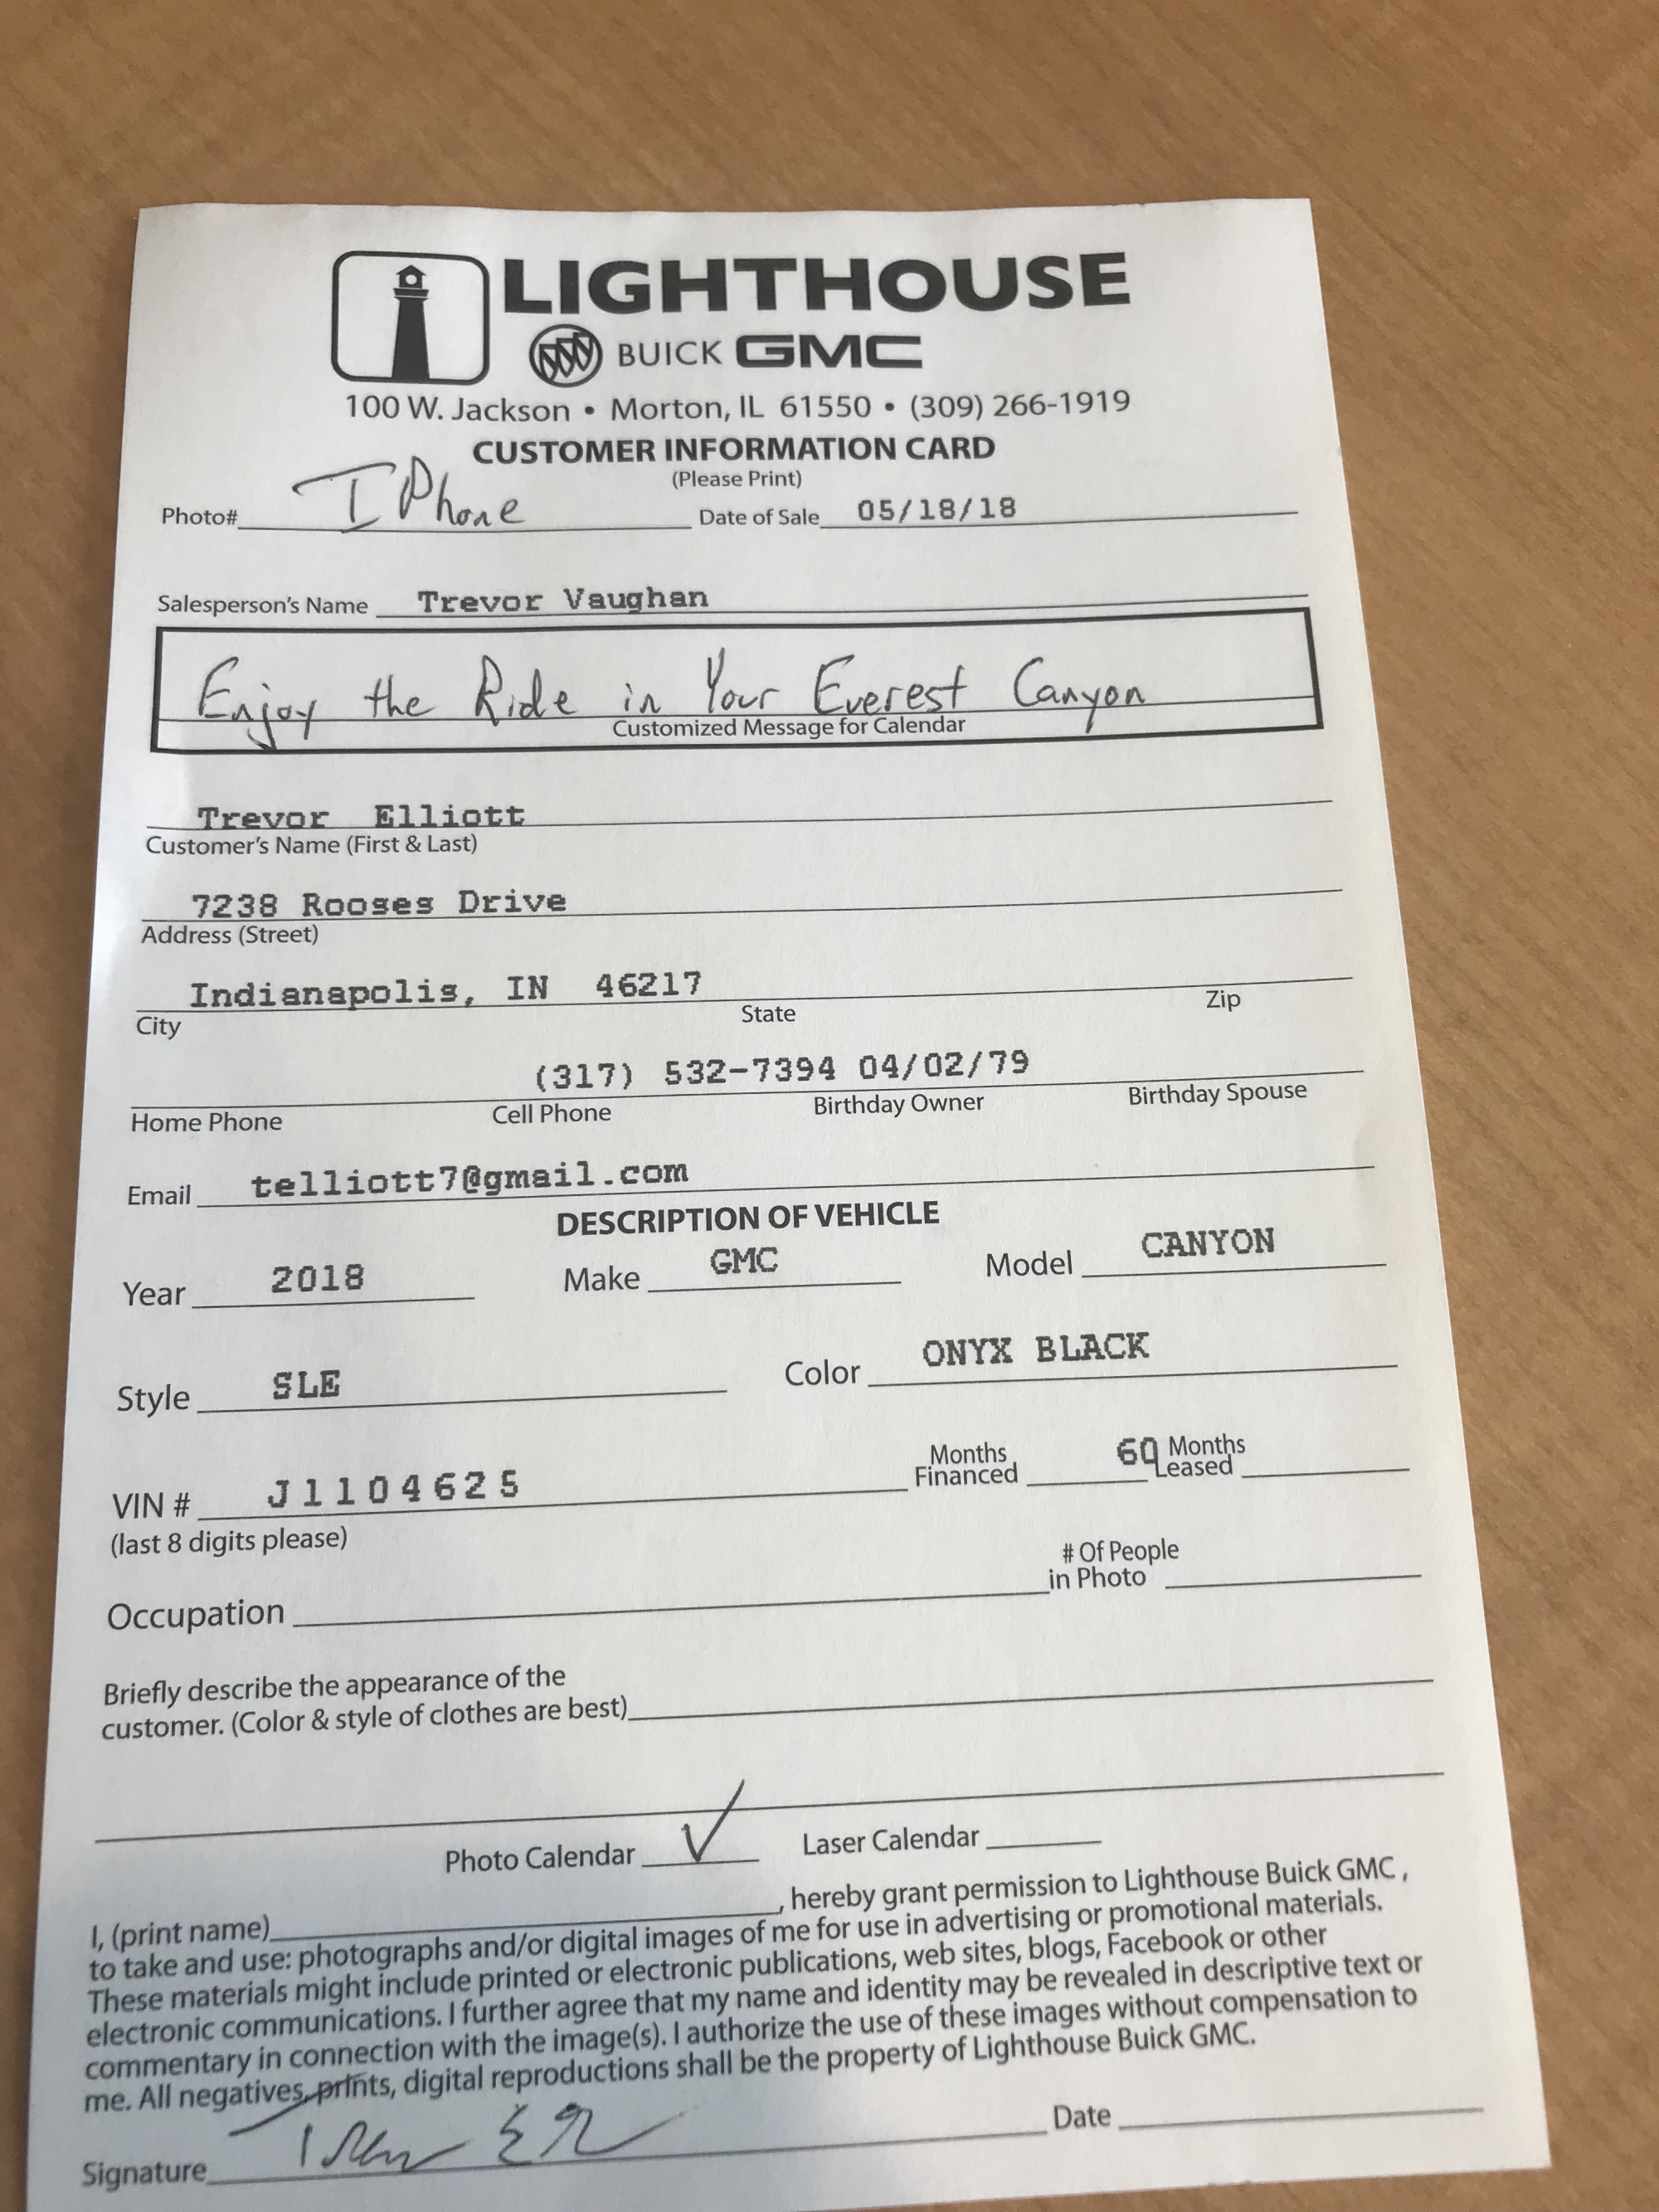 LIGHTHOUSE
BUICK GMC
100 W. Jackson • Morton, IL 61550 • (309) 266-1919
CUSTOMER INFORMATION CARD
(Please Print)
Photo# I Phone Date of Sale 05/18/18
Salesperson's Name Trevor Vaughan
Enjoy the Ride in Your Everest Canyon
Customized Message for Calendar
Trevor Elliott
Customer's Name (First & Last)
7238 Rooses Drive
Address (Street)
Indianapolis, IN 46217
City State Zip
(317) 532-7394 04/02/79
Home Phone Cell Phone Birthday Owner Birthday Spouse
Email telliott7@gmail.com
DESCRIPTION OF VEHICLE
Year 2018 Make GMC Model CANYON
Style SLE Color ONYX BLACK
VIN # J1104625 Months Financed 60 Months Leased
(last 8 digits please)
Occupation # Of People in Photo
Briefly describe the appearance of the
customer. (Color & style of clothes are best)
Photo Calendar ✓ Laser Calendar
I, (print name) , hereby grant permission to Lighthouse Buick GMC ,
to take and use: photographs and/or digital images of me for use in advertising or promotional materials.
These materials might include printed or electronic publications, web sites, blogs, Facebook or other
electronic communications. I further agree that my name and identity may be revealed in descriptive text or
commentary in connection with the image(s). I authorize the use of these images without compensation to
me. All negatives, prints, digital reproductions shall be the property of Lighthouse Buick GMC.
Signature Date